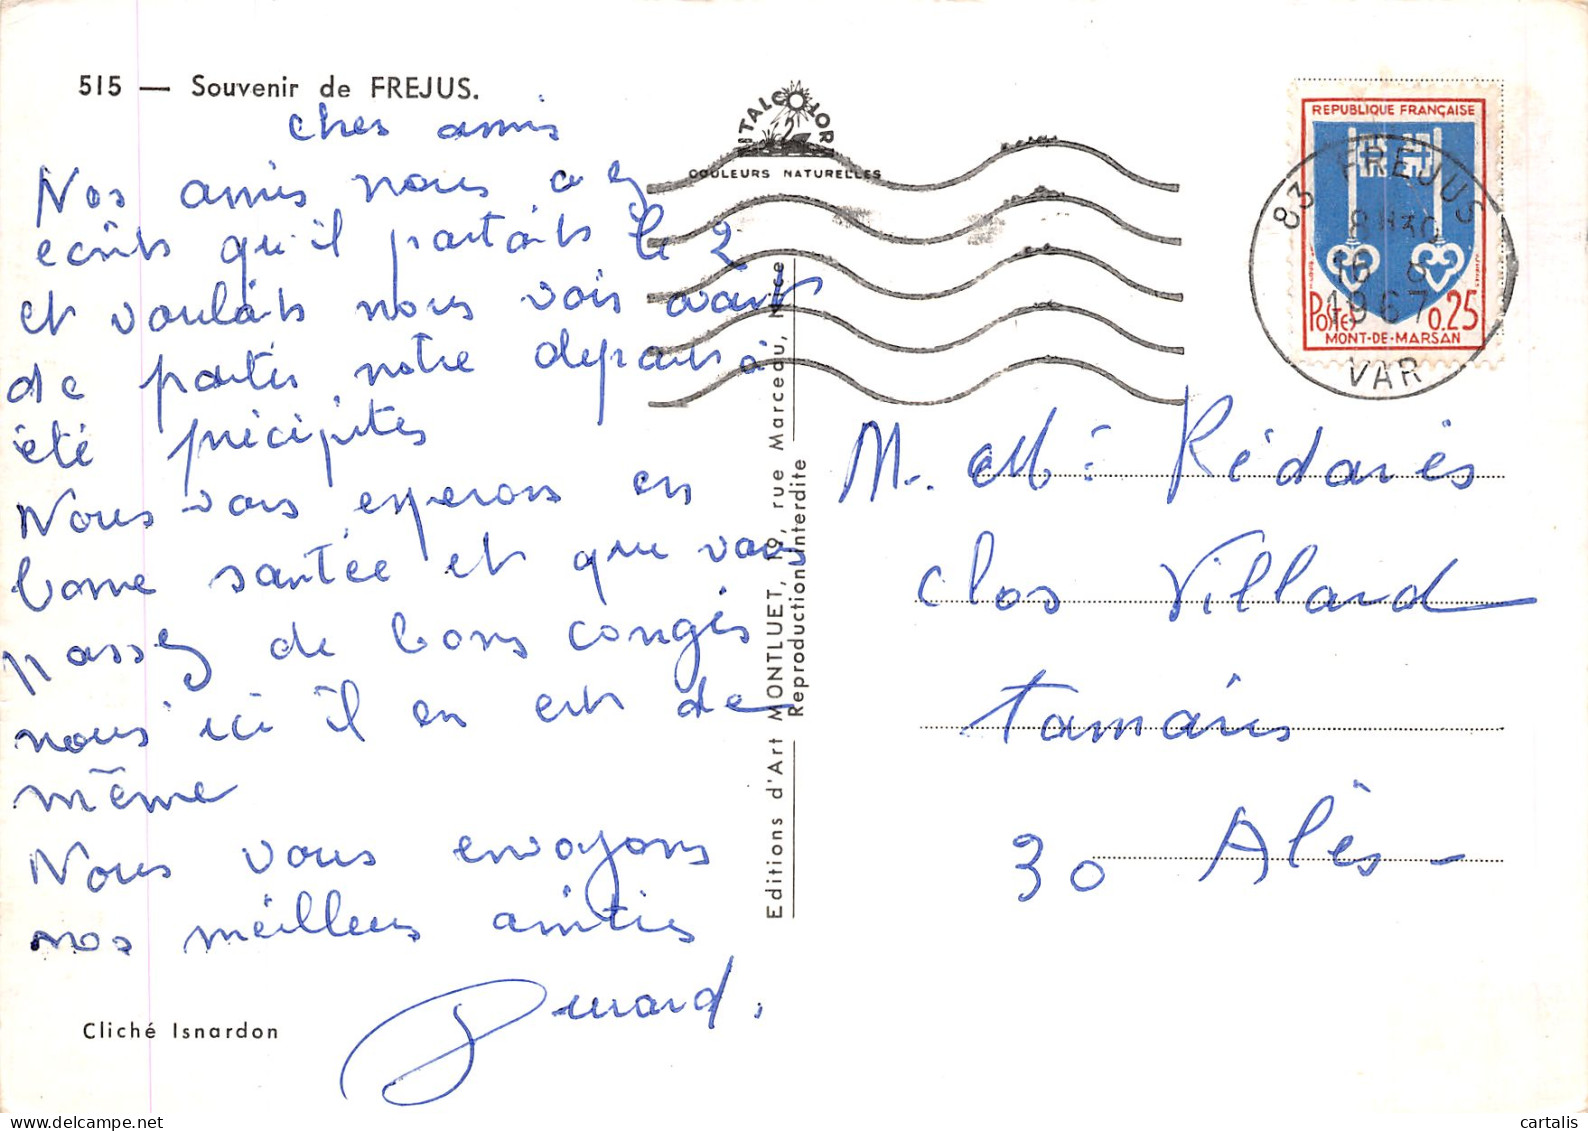 515 — Souvenir de FREJUS.
chers amis
Nos amis nous
écrits qu'il partaits le 2
et voulaits nous voir avant
de partir notre departs à
été précipites
Nous vous esperons en
bonne santée et que vous
passez de bons congés
nous ici il en ets de
même
Nous vous envoyons
nos meilleurs amities
Cliché Isnardon
ITALCOLOR
COULEURS NATURELLES
Editions d'Art MONTLUET, 19, rue Marceau, Nice
Reproduction Interdite
REPUBLIQUE FRANÇAISE
POSTES 0.25
MONT-DE-MARSAN
83 FREJUS
8H30
16
1967
VAR
M. Rédarès
Clos Villard
Tamaris
30 Alès -
cartalis